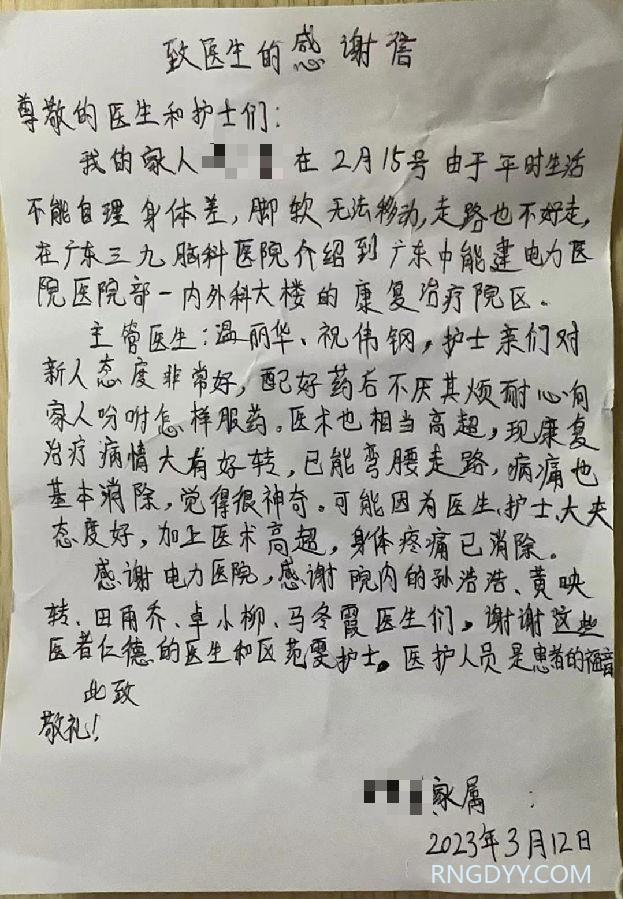 致医生的感谢信
尊敬的医生和护士们:
我的家人 在2月15号由于平时生活
不能自理身体差,脚软无法移动,走路也不好走,
在广东三九脑科医院介绍到广东中能建电力医
院医院部一内外科大楼的康复治疗院区。
主管医生:温丽华、祝伟钢,护士亲们对
新人态度非常好,配好药后不厌其烦耐心向
家人吩咐怎样服药。医术也相当高超,现康复
治疗病情大有好转,已能弯腰走路,病痛也
基本消除,觉得很神奇。可能因为医生、护士、大夫
态度好,加上医术高超,身体疼痛已消除。
感谢电力医院,感谢院内的孙浩浩、黄映
转、田甬乔、卓小柳、马冬霞医生们。谢谢这些
医者仁德的医生和区苑雯护士。医护人员是患者的福音
此致
敬礼!
家属 :
2023年3月12日
RNGDYY.COM